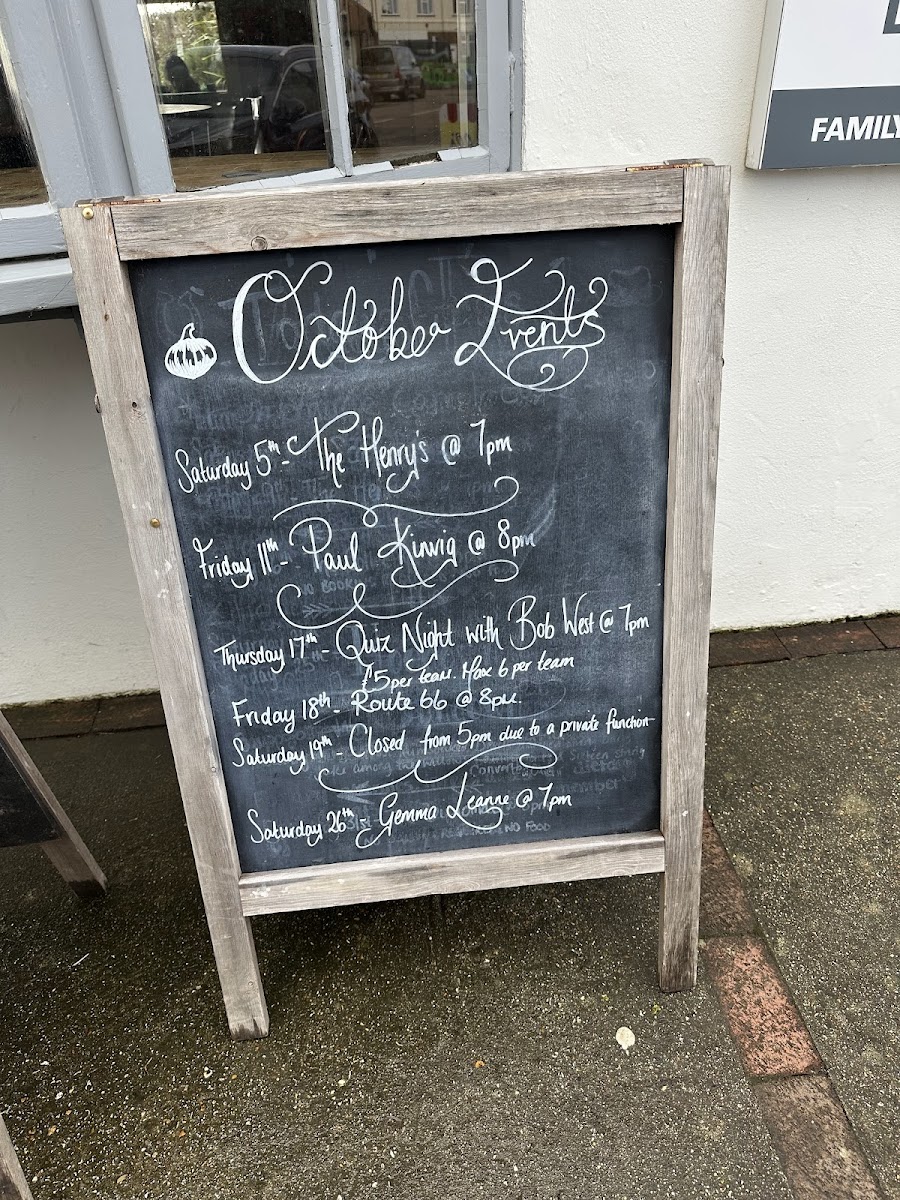 FAMILY
October Events
Saturday 5th - The Henry's @ 7pm
Friday 11th - Paul Kirwig @ 8pm
Thursday 17th - Quiz Night with Bob West @ 7pm
£5 per team. Max 6 per team
Friday 18th - Route 66 @ 8pm.
Saturday 19th - Closed from 5pm due to a private function
Saturday 26th - Gemma Leanne @ 7pm
NO FOOD